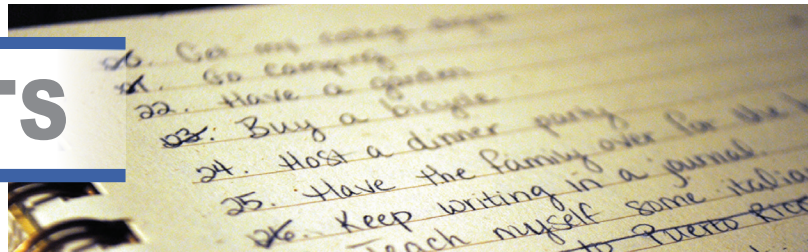 TS
20. Get my college degree
21. Go camping
22. Have a garden
23. Buy a bicycle
24. Host a dinner party
25. Have the family over for the
26. Keep writing in a journal.
Teach myself some italia
to Puerto Rico